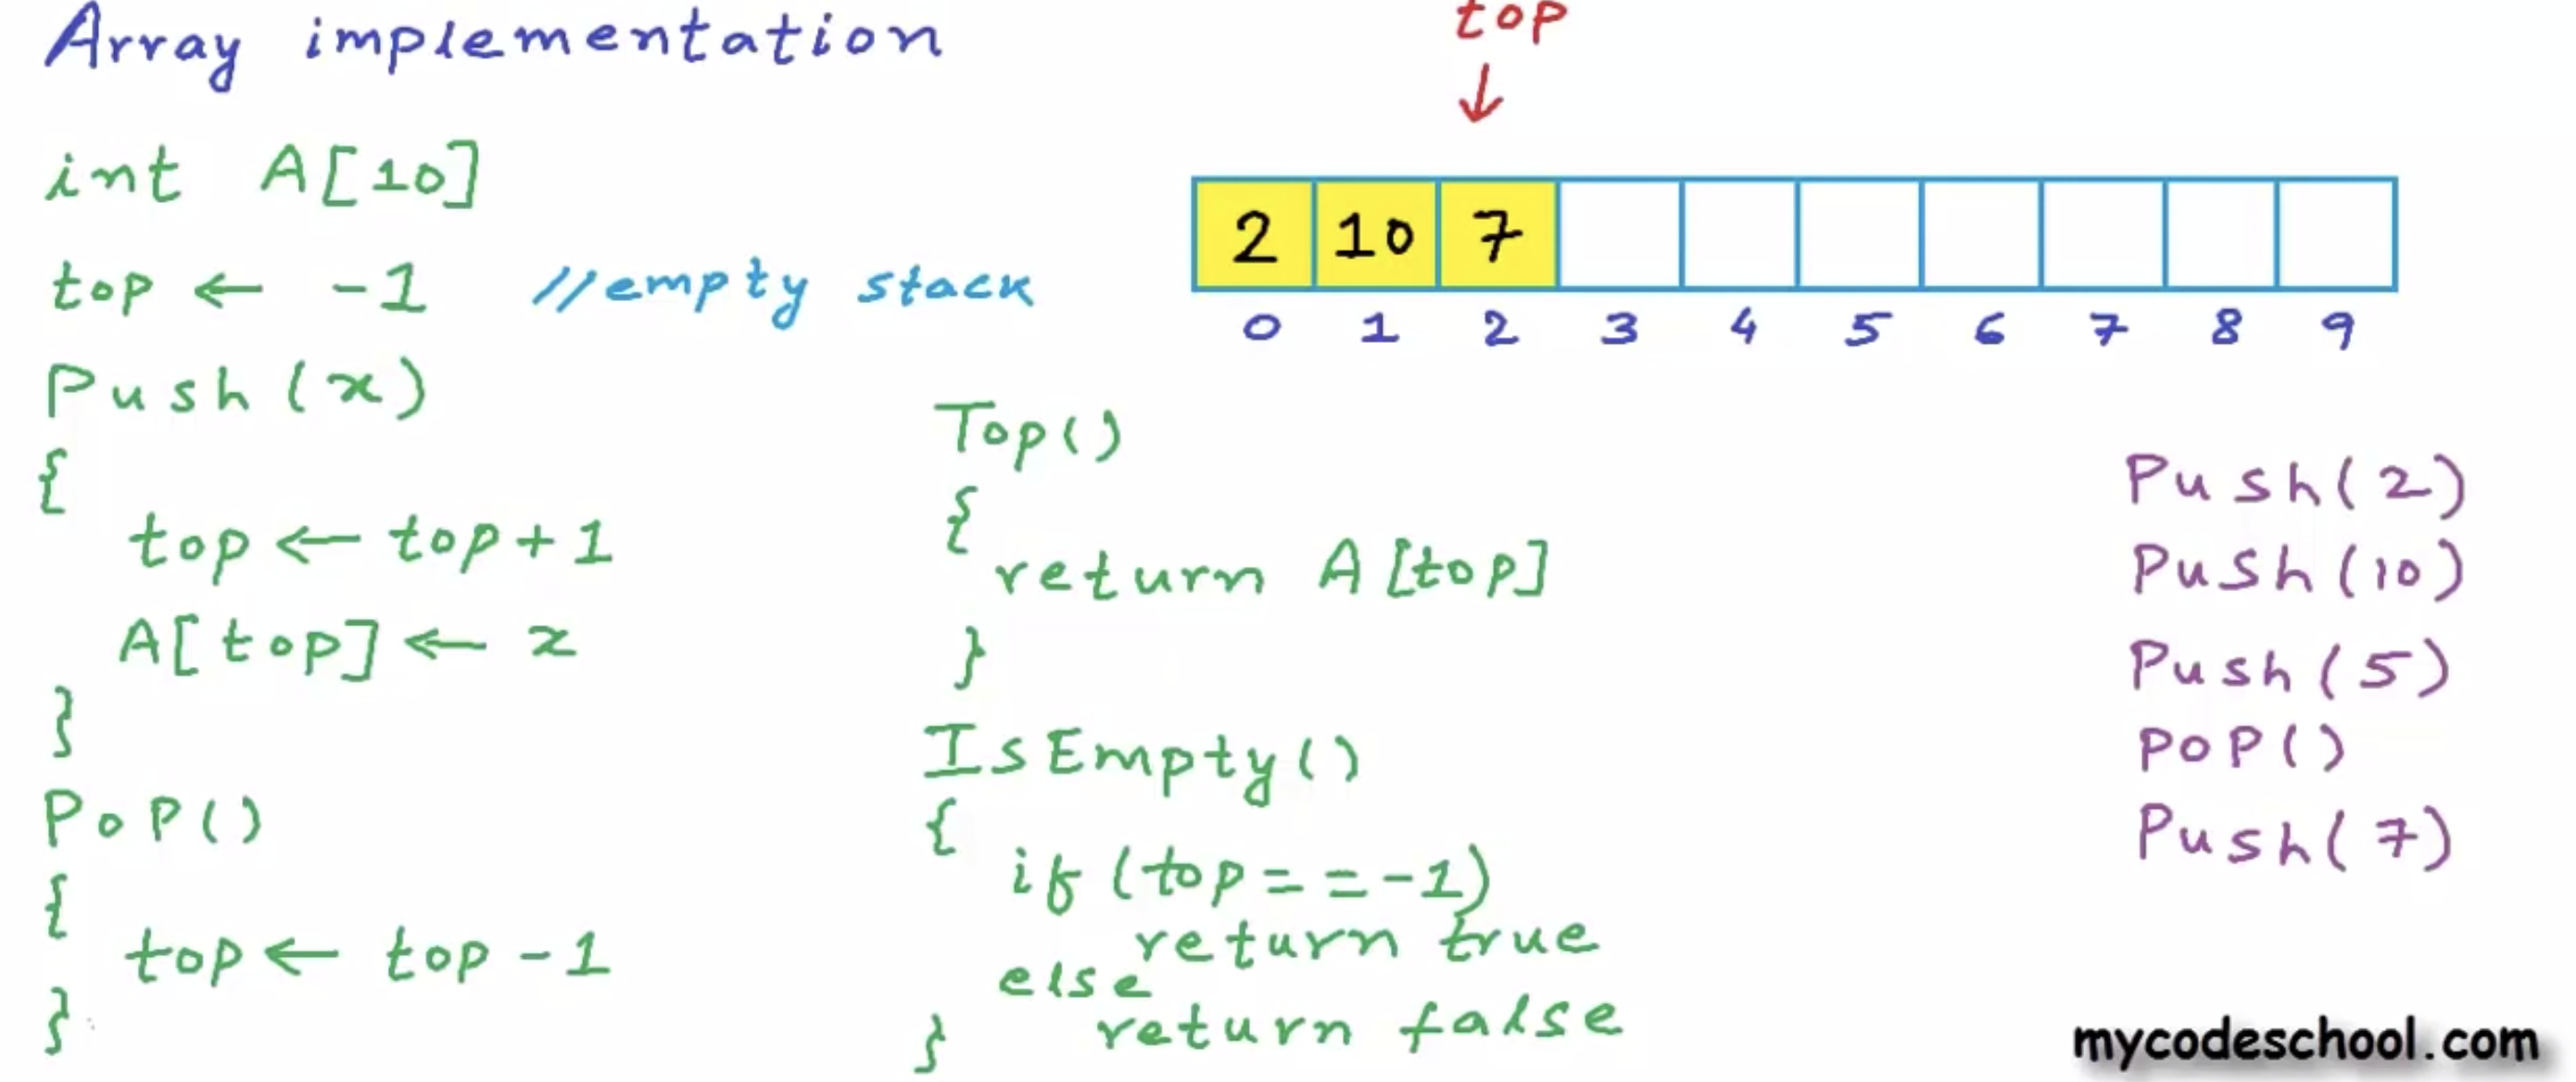 Array implementation
int A[10]
top ← -1 //empty stack
Push(x)
{
top ← top+1
A[top] ← x
}
POP()
{
top ← top -1
}
top
↓
2 10 7
0 1 2 3 4 5 6 7 8 9
Top()
{
return A[top]
}
IsEmpty()
{
if (top==-1)
return true
else
return false
}
Push(2)
Push(10)
Push(5)
POP()
Push(7)
mycodeschool.com